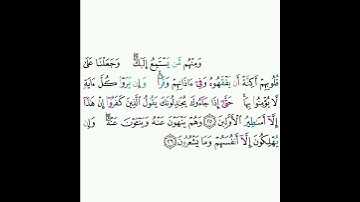 وَمِنْهُم مَّن يَسْتَمِعُ إِلَيْكَ ۖ وَجَعَلْنَا عَلَىٰ
قُلُوبِهِمْ أَكِنَّةً أَن يَفْقَهُوهُ وَفِي ءَاذَانِهِمْ وَقْرًا ۚ وَإِن يَرَوْا۟ كُلَّ ءَايَةٍ
لَّا يُؤْمِنُوا۟ بِهَا ۚ حَتَّىٰٓ إِذَا جَآءُوكَ يُجَٰدِلُونَكَ يَقُولُ ٱلَّذِينَ كَفَرُوٓا۟ إِنْ هَٰذَآ
إِلَّآ أَسَٰطِيرُ ٱلْأَوَّلِينَ ۝٢٥ وَهُمْ يَنْهَوْنَ عَنْهُ وَيَنْـَٔوْنَ عَنْهُ ۖ وَإِن
يُهْلِكُونَ إِلَّآ أَنفُسَهُمْ وَمَا يَشْعُرُونَ ۝٢٦